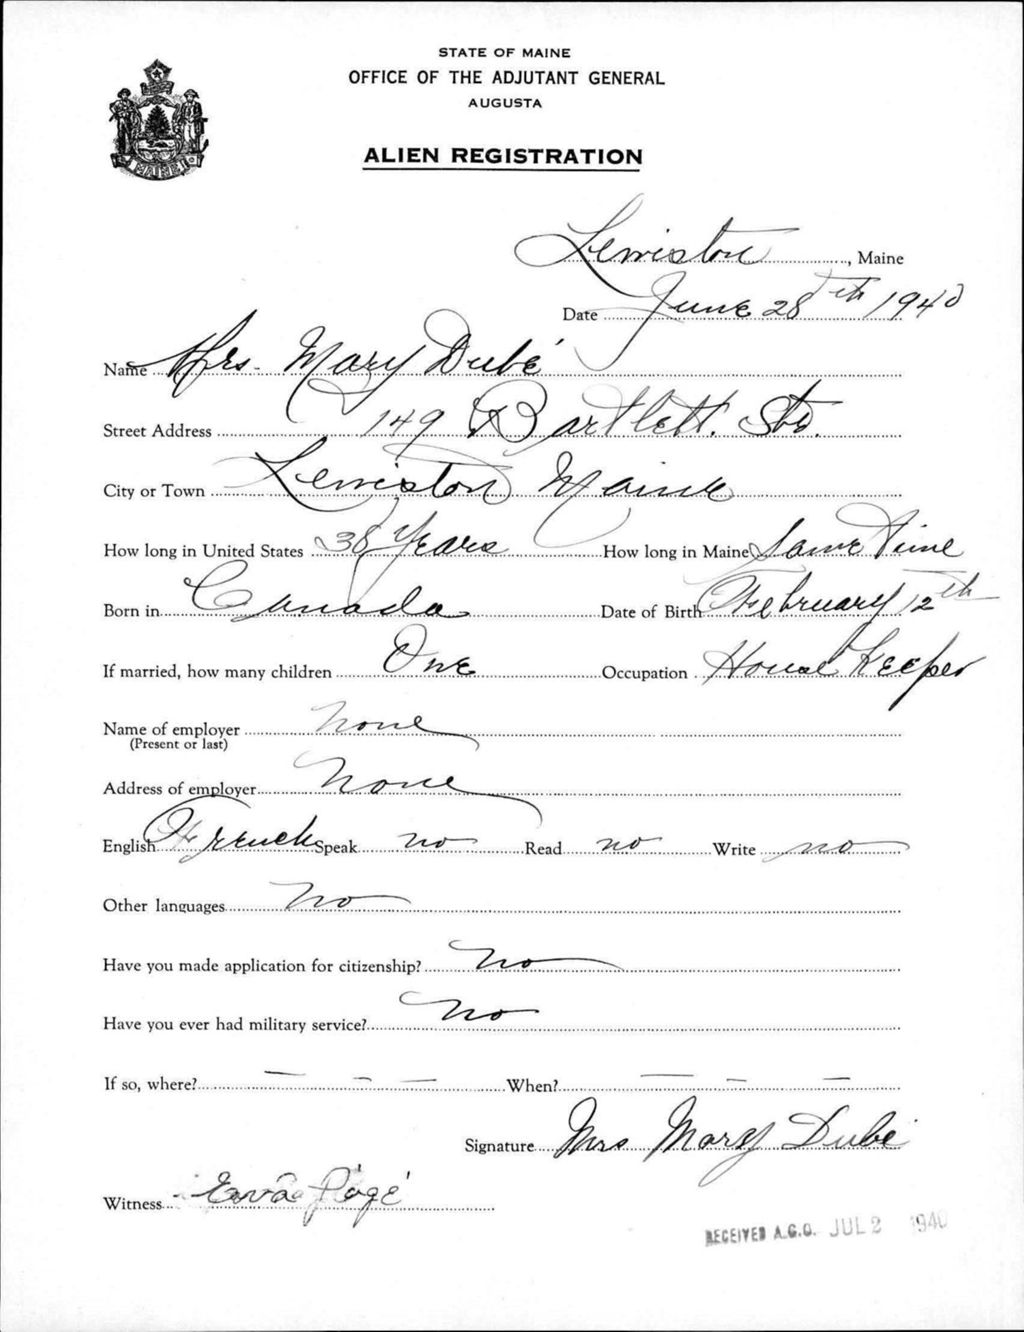 STATE OF MAINE
OFFICE OF THE ADJUTANT GENERAL
AUGUSTA
ALIEN REGISTRATION
MAINE
Lewiston, Maine
Date June 28th 1940
Name Mrs. Mary Dubé
Street Address 149 Bartlett. Str.
City or Town Lewiston Maine
How long in United States 38 Years How long in Maine Same Time
Born in Canada Date of Birth February 12th
If married, how many children One Occupation House Keeper
Name of employer none
(Present or last)
Address of employer none
English French Speak no Read no Write no
Other languages No
Have you made application for citizenship? No
Have you ever had military service? No
If so, where? — — — When? — — —
Signature Mrs Mary Dubé
Witness Eva Pagé
RECEIVED A.G.O. JUL 2 1940